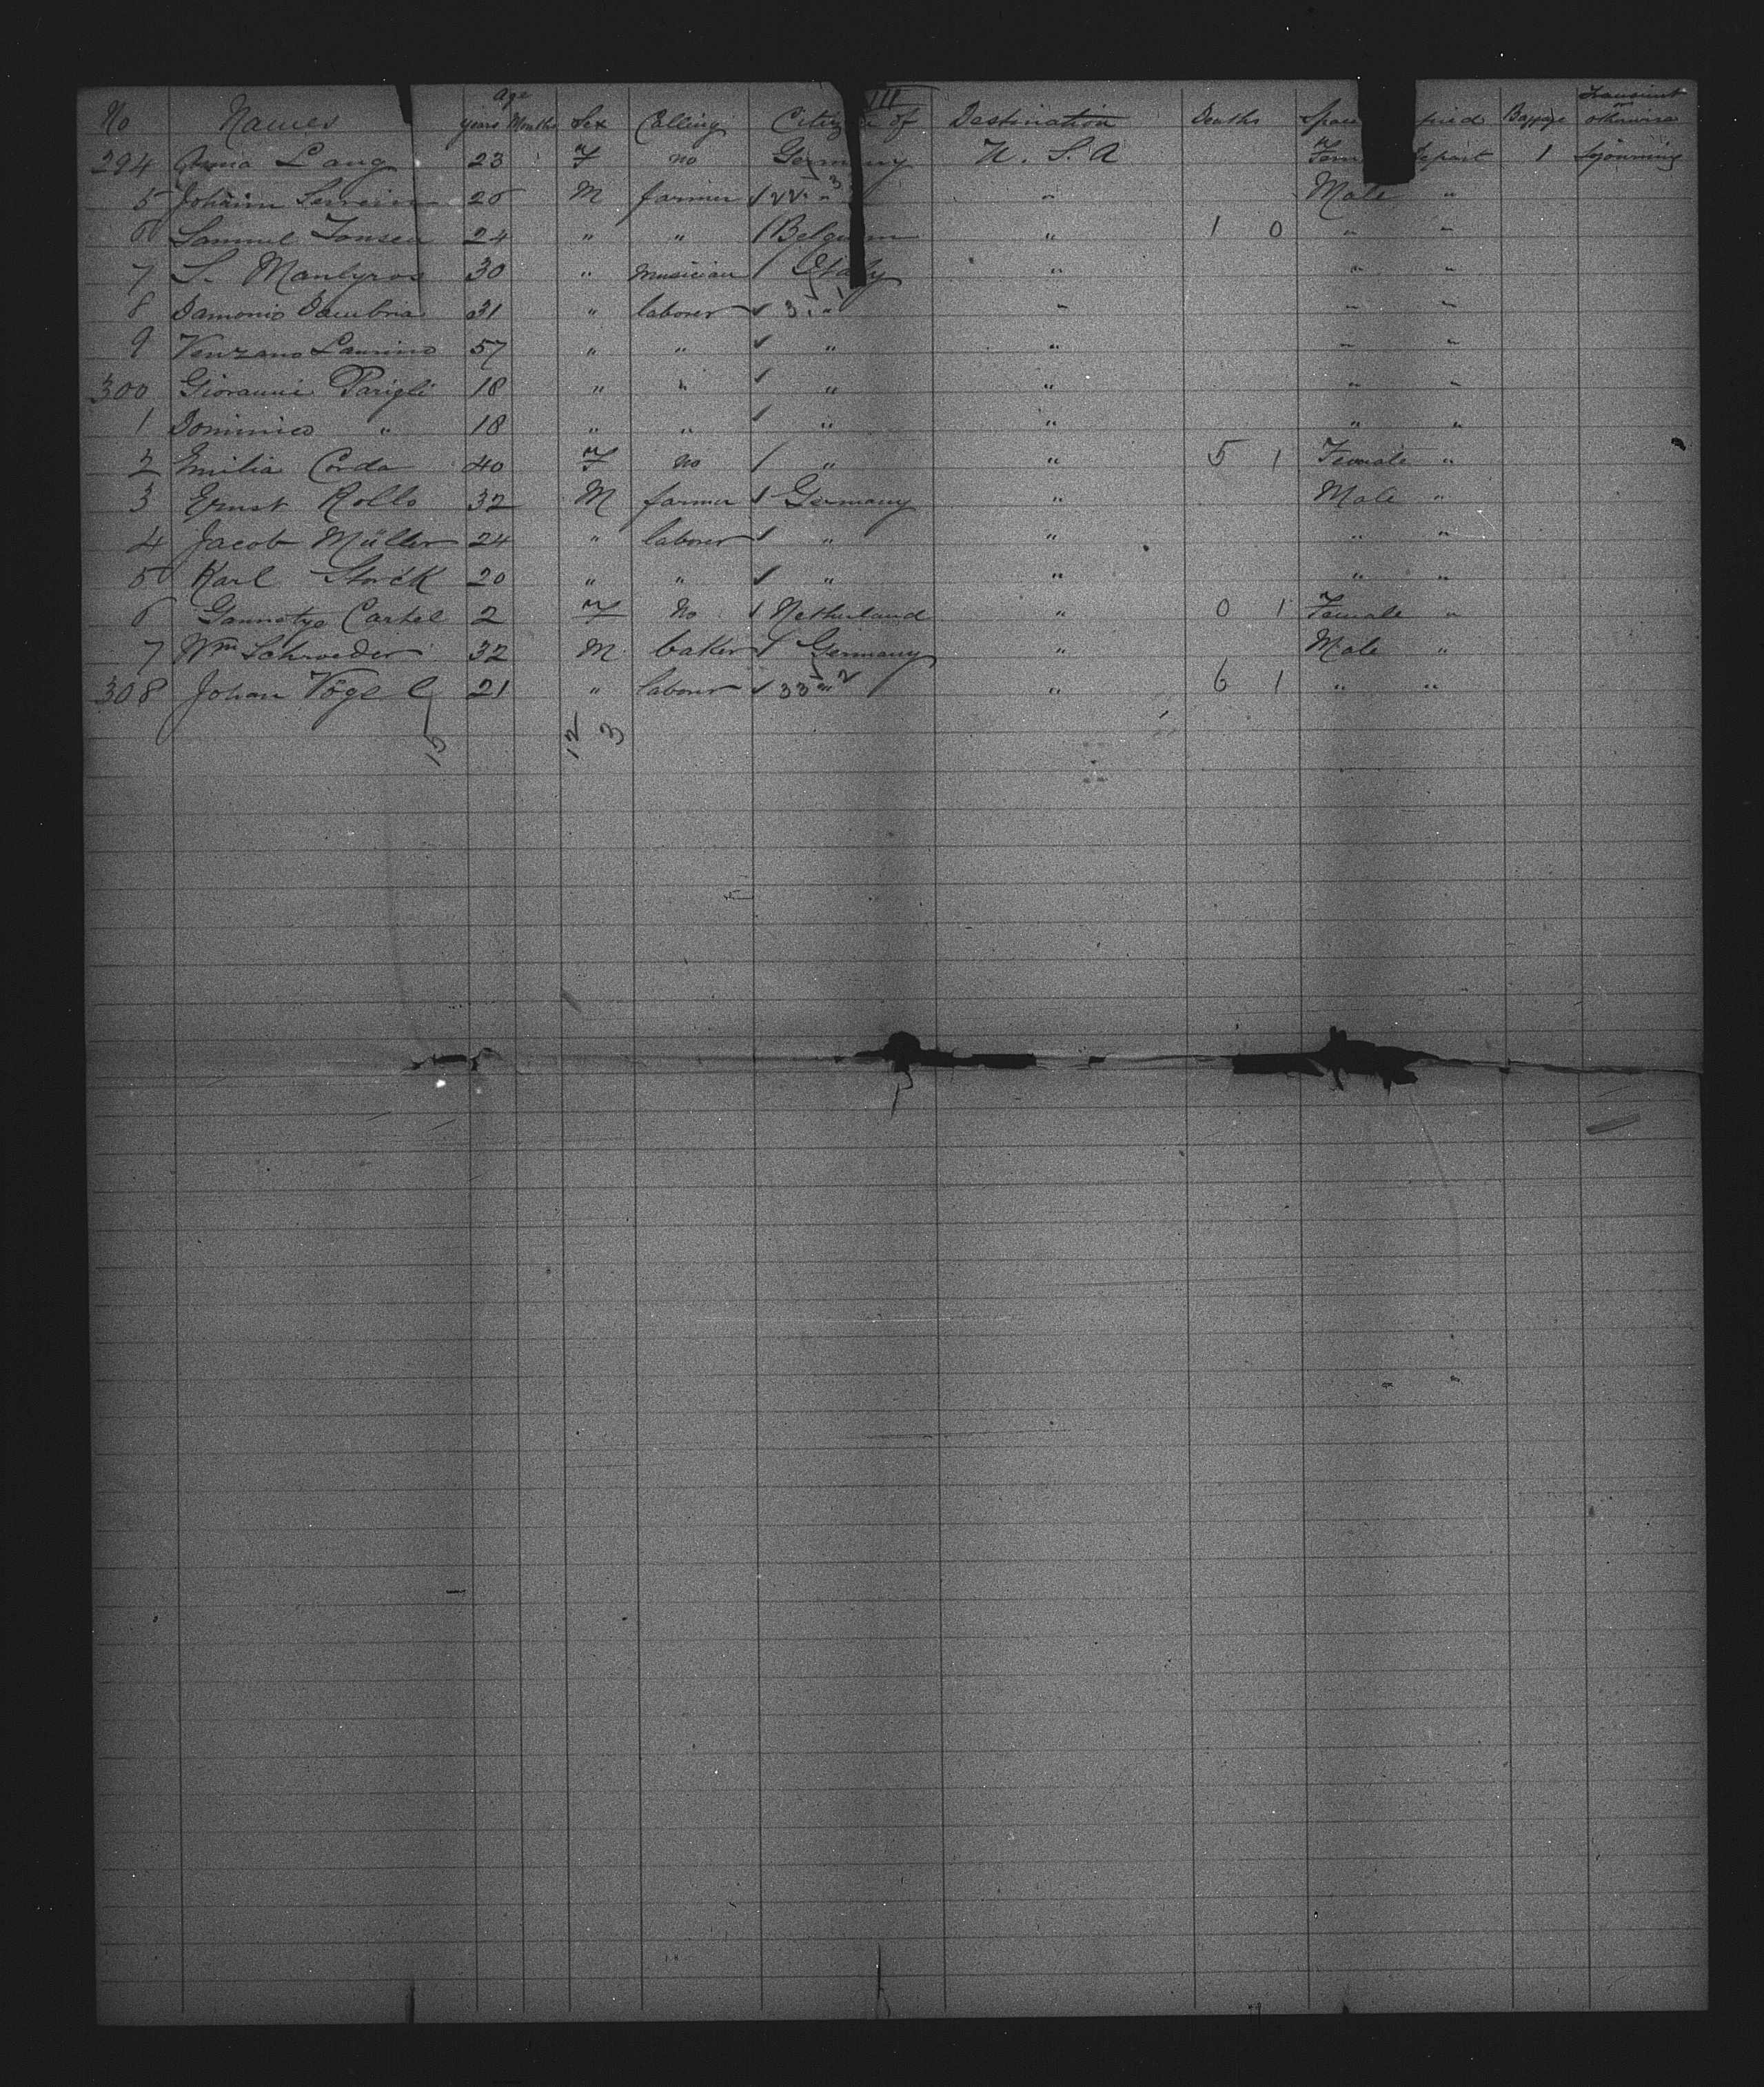 VIII
Age Transient
No Names years Months Sex Calling Citizen of Destination Deaths Baggage or otherwise
294 Anna Lang 23 F no Germany U. S. A 1 Sojourning
5 Johann 26 M farmer " " Male "
6 Samuel 24 " " Belgium " 1 0 " "
7 S. 30 " musician Italy " " "
8 31 " laborer " " " "
9 Venzano 57 " " " " " "
300 Giovanni Parigli 18 " " " " " "
1 Dominico " 18 " " " " " "
2 Emilia Corda 40 F no " " 5 1 Female "
3 Ernst Rollo 32 M farmer Germany " Male "
4 Jacob Müller 24 " laborer " " " "
5 Karl Storck 20 " " " " " "
6 Cartel 2 F No Netherland " 0 1 Female "
7 Wm Schroeder 32 M baker Germany " Male "
308 Johan Vögel 21 " laborer " " 6 1 " "
15 12 3